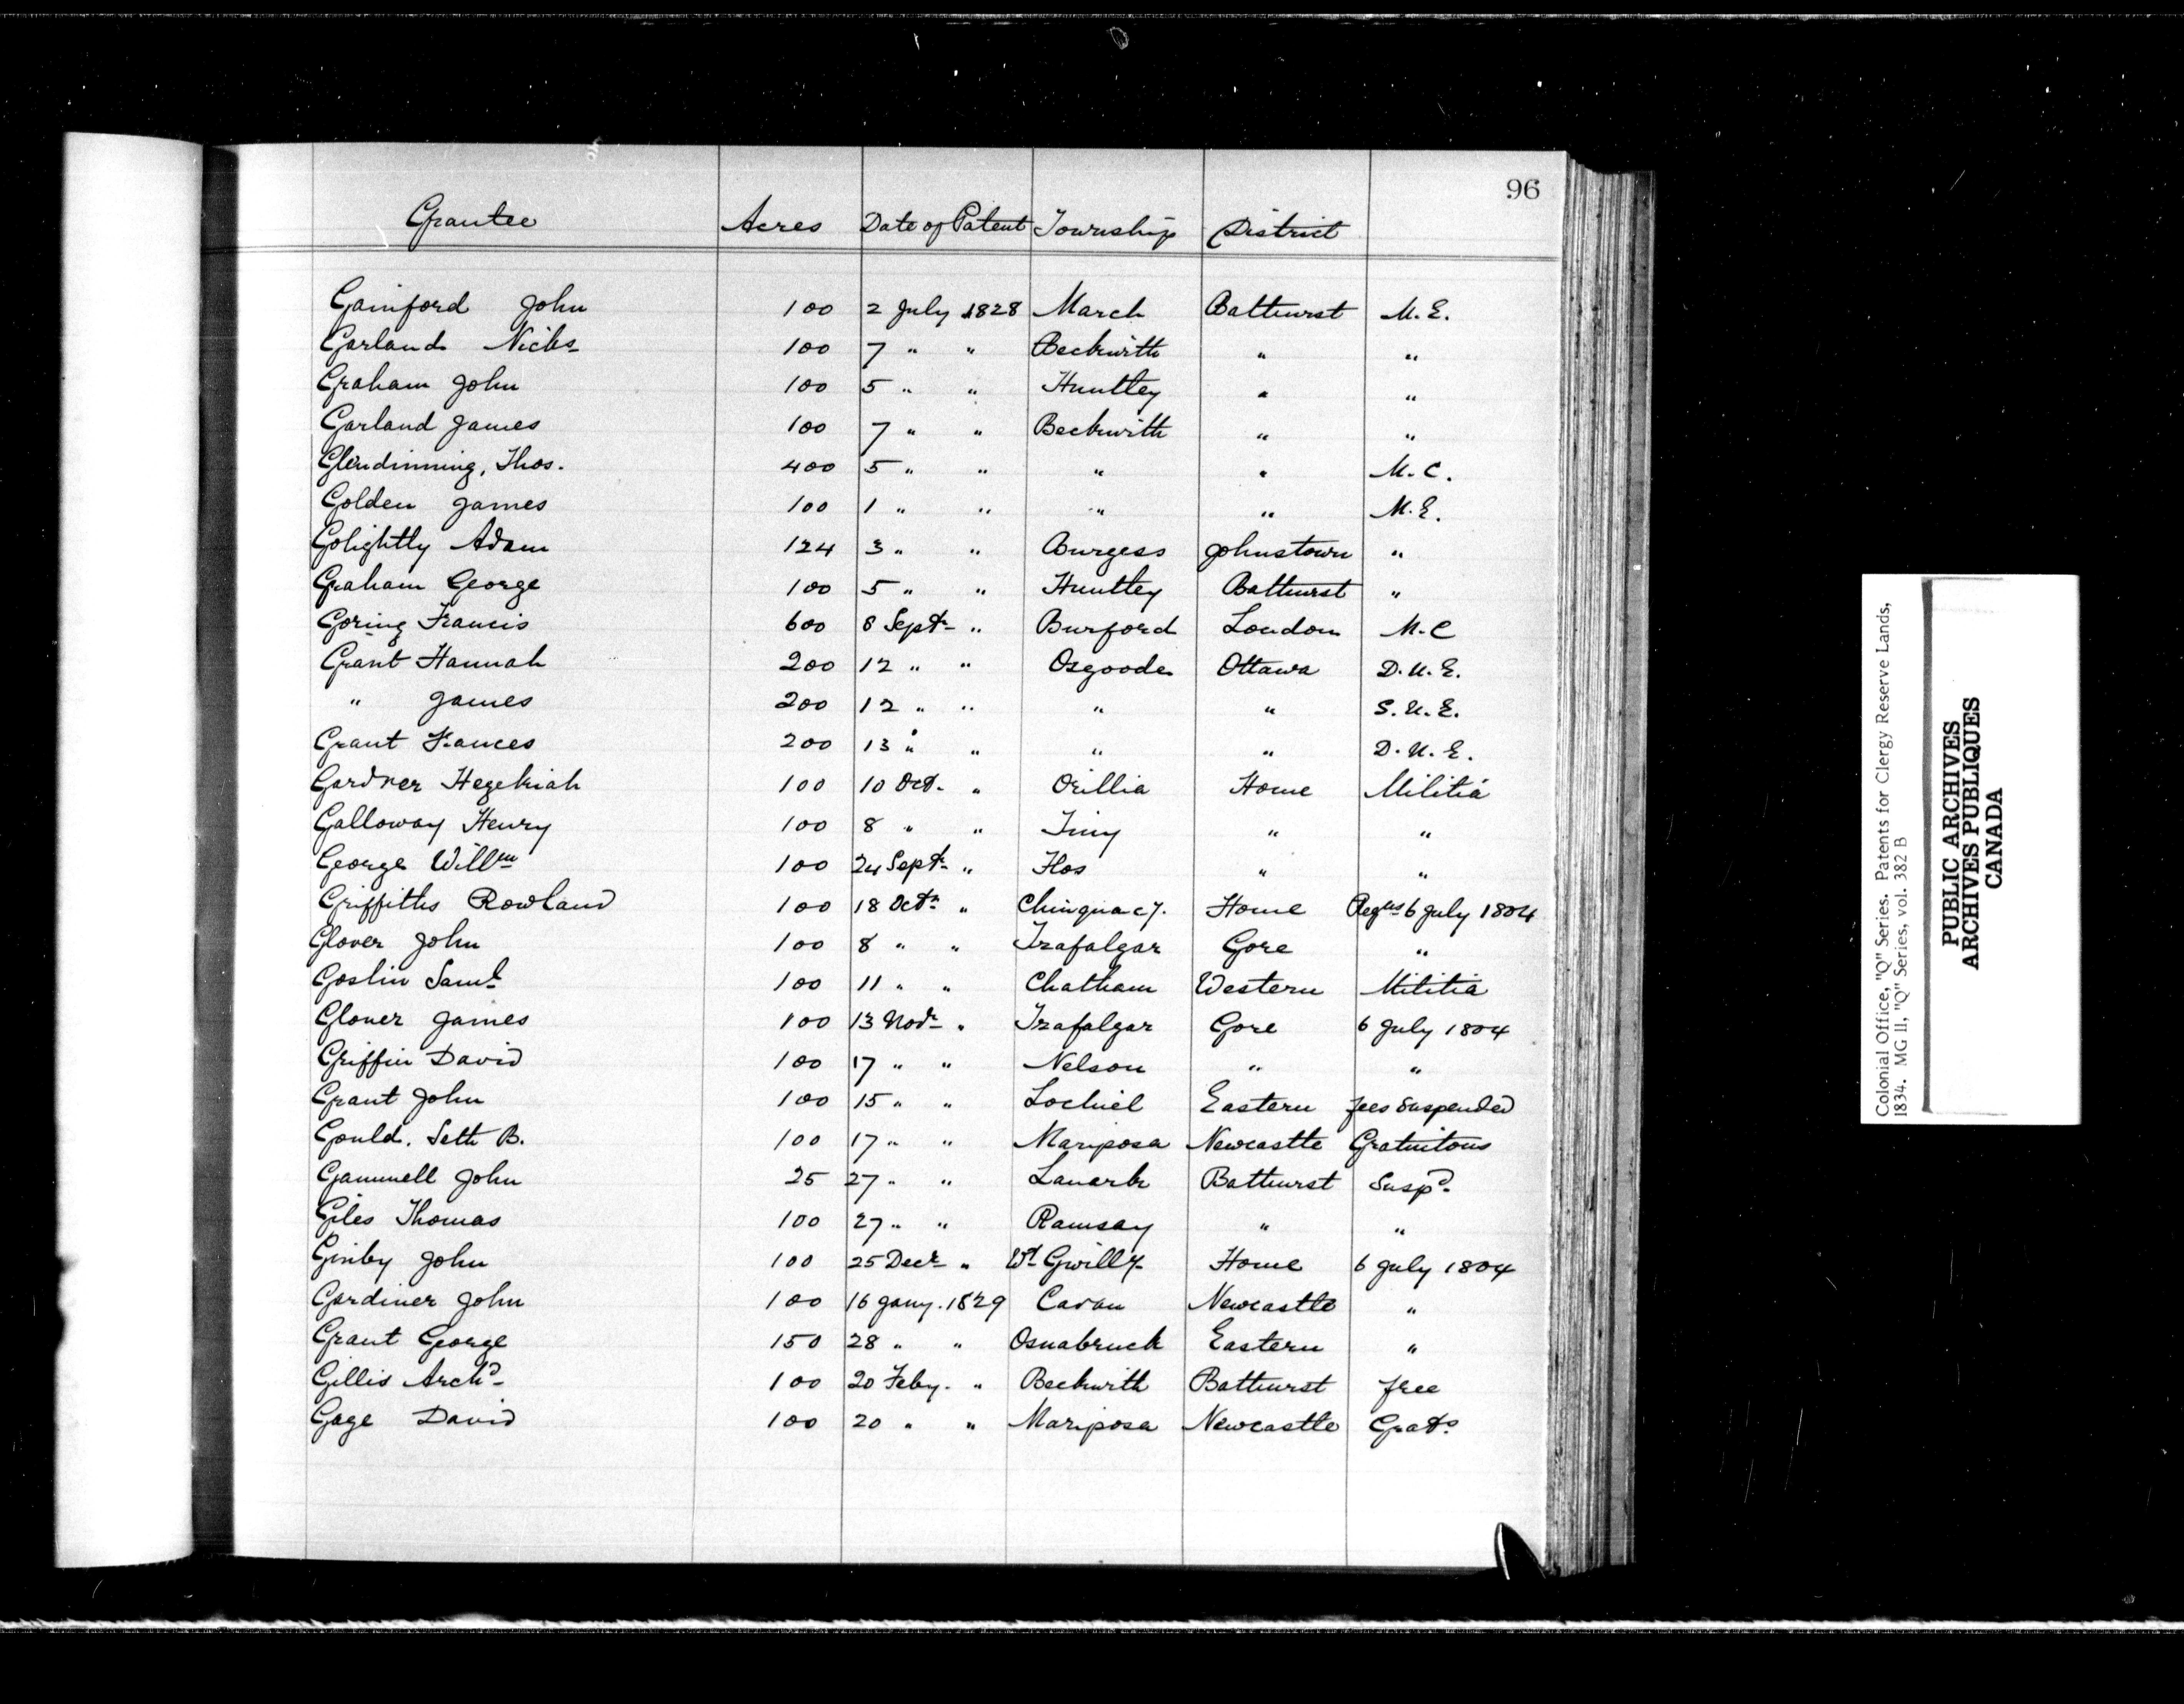 96
Grantee Acres Date of Patent Township District
Gainford John 100 2 July 1828 March Bathurst M.E.
Garland Nichs 100 7 " " Beckwith " "
Graham John 100 5 " " Huntley " "
Garland James 100 7 " " Beckwith " "
Glendinning, Thos. 400 5 " " " " M.C.
Golden James 100 1 " " " " M.E.
Golightly Adam 124 3 " " Burgess Johnstown "
Graham George 100 5 " " Huntley Bathurst "
Goring Francis 600 8 Septr " Burford London M.C
Grant Hannah 200 12 " " Osgoode Ottawa D.U.E.
" James 200 12 " " " " S.U.E.
Grant Frances 200 13 " " " " D.U.E.
Gardner Hezekiah 100 10 Oct. " Orillia Home Militia
Galloway Henry 100 8 " " Tiny " "
George Willm 100 24 Septr " Flos " "
Griffiths Rowland 100 18 Octr " Chinguacy. Home Regns 6 July 1804
Glover John 100 8 " " Trafalgar Gore "
Goslin Saml 100 11 " " Chatham Western Militia
Glover James 100 13 Novr " Trafalgar Gore 6 July 1804
Griffin David 100 17 " " Nelson " "
Grant John 100 15 " " Lochiel Eastern fees suspended
Gould, Seth B. 100 17 " " Mariposa Newcastle Gratuitous
Gammell John 25 27 " " Lanark Bathurst Suspd.
Giles Thomas 100 27 " " Ramsay " "
John 100 25 Decr " Wt Gwilly Home 6 July 1804
Gardiner John 100 16 Jany. 1829 Cavan Newcastle "
Grant George 150 28 " " Osnabruck Eastern "
Gillis Archd 100 20 Feby. " Beckwith Bathurst free
Gage David 100 20 " " Mariposa Newcastle Grats
Colonial Office, "Q" Series. Patents for Clergy Reserve Lands,
1834. MG 11, "Q" Series, vol. 382 B
PUBLIC ARCHIVES
ARCHIVES PUBLIQUES
CANADA